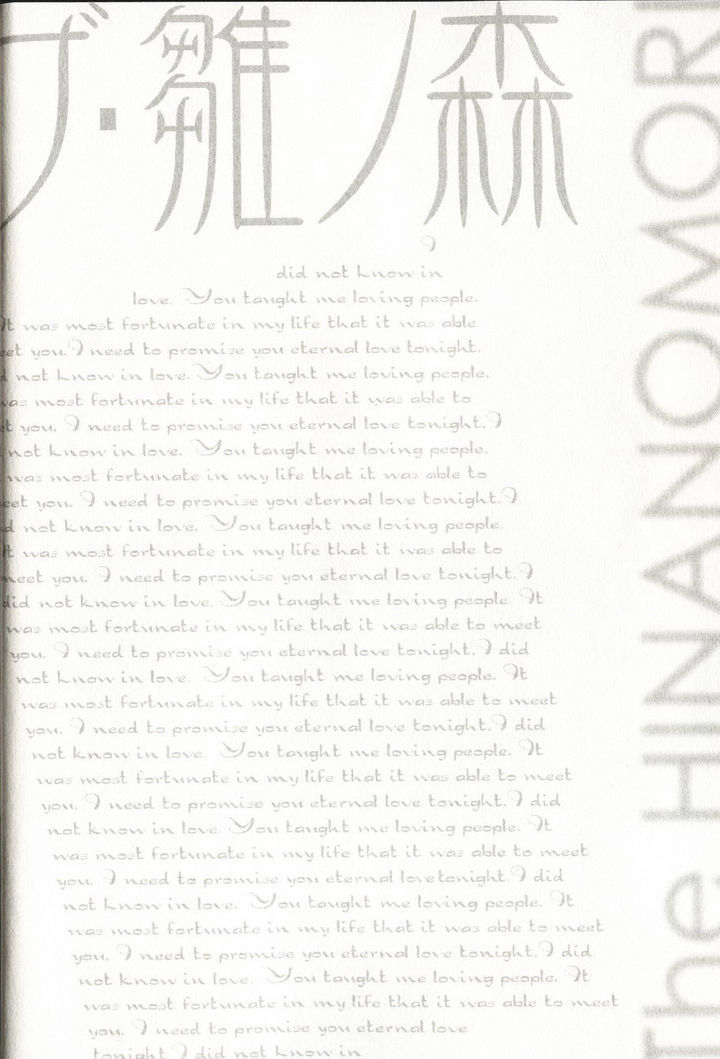 ブ・雛ノ森
I
did not know in
love. You taught me loving people.
It was most fortunate in my life that it was able
eet you. I need to promise you eternal love tonight.
d not know in love. You taught me loving people.
was most fortunate in my life that it was able to
et you. I need to promise you eternal love tonight. I
not know in love. You taught me loving people.
was most fortunate in my life that it was able to
eet you. I need to promise you eternal love tonight. I
d not know in love. You taught me loving people.
It was most fortunate in my life that it was able to
meet you. I need to promise you eternal love tonight. I
did not know in love. You taught me loving people. It
was most fortunate in my life that it was able to meet
you. I need to promise you eternal love tonight. I did
not know in love. You taught me loving people. It
was most fortunate in my life that it was able to meet
you. I need to promise you eternal love tonight. I did
not know in love. You taught me loving people. It
was most fortunate in my life that it was able to meet
you. I need to promise you eternal love tonight. I did
not know in love. You taught me loving people. It
was most fortunate in my life that it was able to meet
you. I need to promise you eternal lovetonight. I did
not know in love. You taught me loving people. It
was most fortunate in my life that it was able to meet
you. I need to promise you eternal love tonight. I did
not know in love. You taught me loving people. It
was most fortunate in my life that it was able to meet
you. I need to promise you eternal love
tonight I did not know in
The HINANOMORI